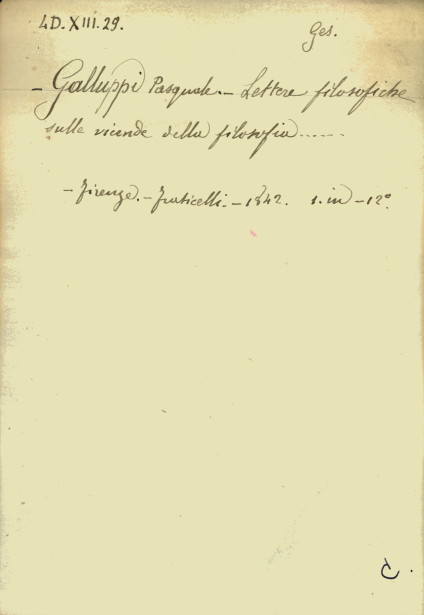 4D.XIII.29.
Ges.
- Galluppi Pasquale. - Lettere filosofiche
sulle vicende della filosofia......
- Firenze. - Fraticelli. - 1842. 1. in - 12°.
C.